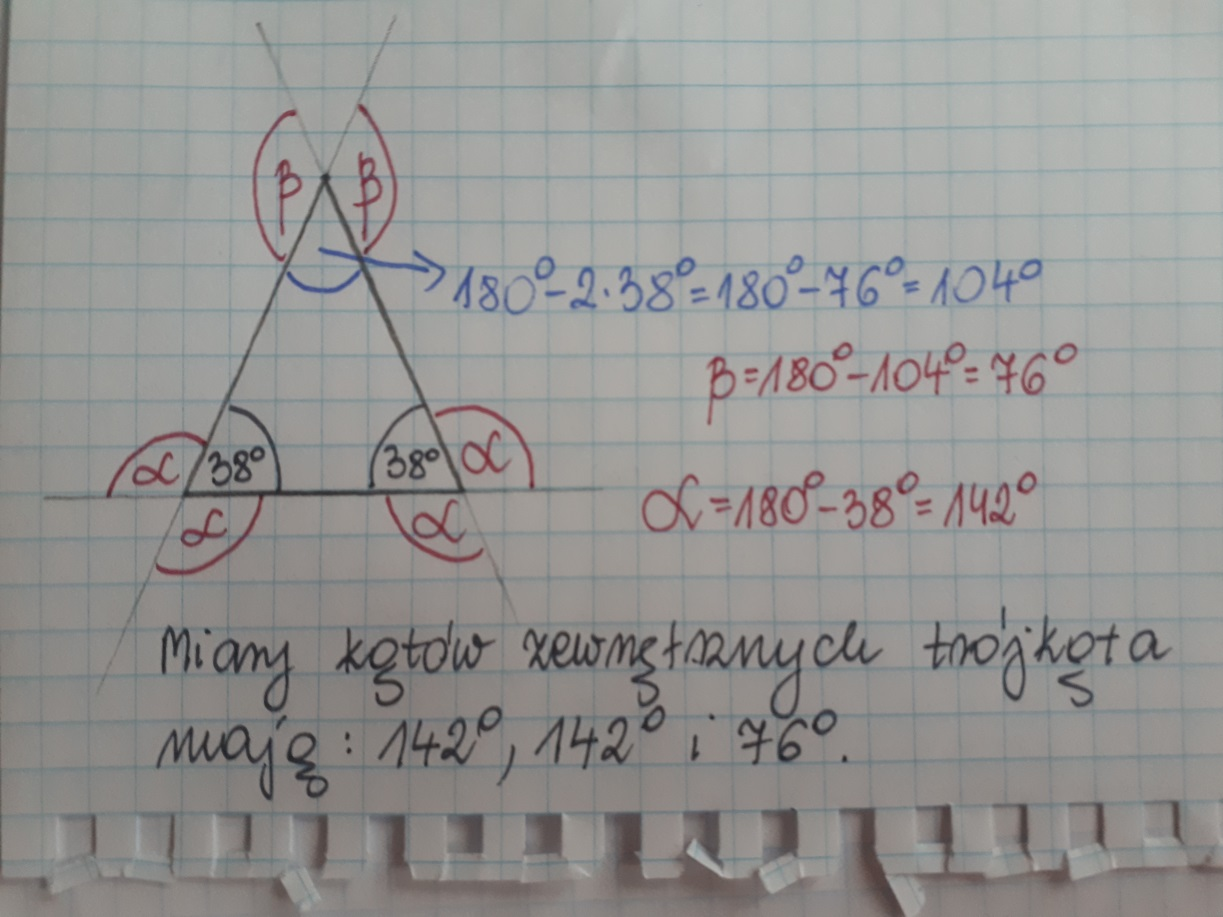 β β
180°-2·38°=180°-76°=104°
β=180°-104°=76°
α 38° 38° α
α=180°-38°=142°
α α
Miary kątów zewnętrznych trójkąta
mają: 142°, 142° i 76°.